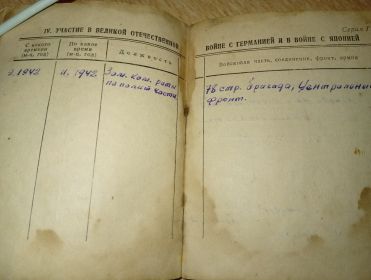 Серия Г
IV. УЧАСТИЕ В ВЕЛИКОЙ ОТЕЧЕСТВЕННОЙ
ВОЙНЕ С ГЕРМАНИЕЙ И В ВОЙНЕ С ЯПОНИЕЙ
С какого времени (м-ц, год)
По какое время (м-ц, год)
Должность
Войсковая часть, соединение, фронт, армия
1942
1942
Зам. ком. роты
по полит части
78 стр. бригада, Центральный
фронт.